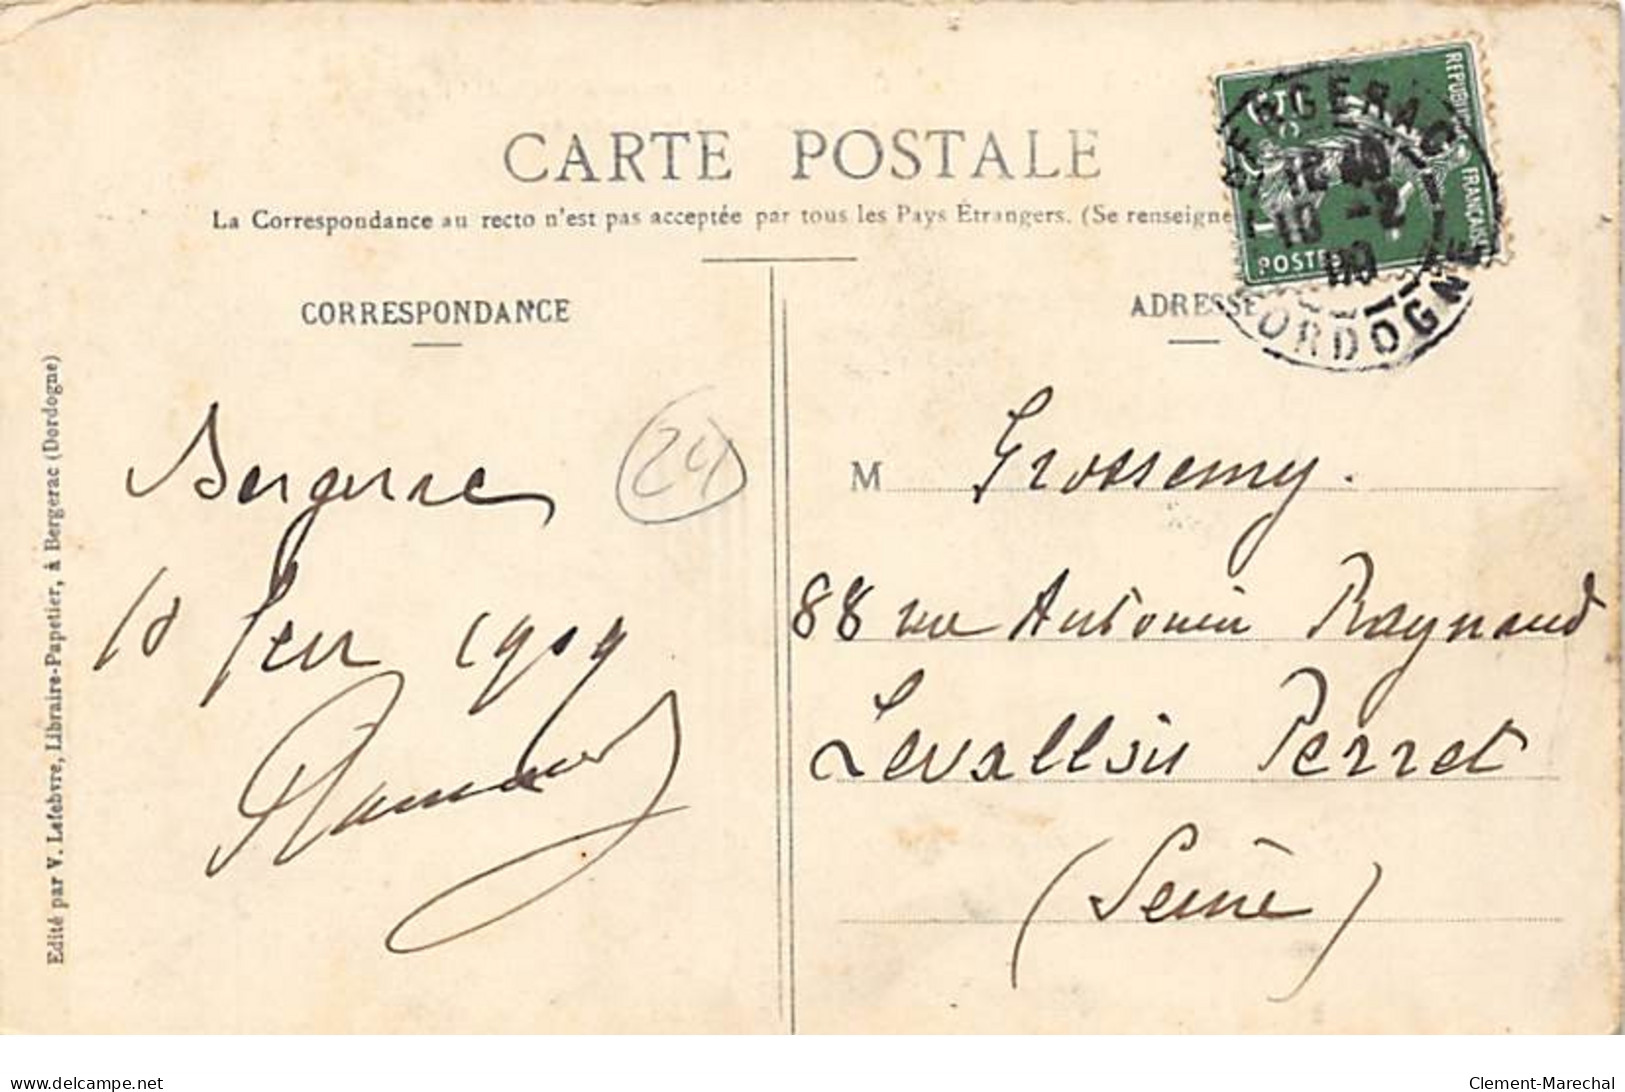 CARTE POSTALE
La Correspondance au recto n'est pas acceptée par tous les Pays Étrangers. (Se renseigne
CORRESPONDANCE
Bergerac
24
10 fevr 1909
Edité par V. Lefebvre, Libraire-Papetier, à Bergerac (Dordogne)
ADRESSE
M Grossemy.
88 rue Antonin Raynaud
Levallois Perret
(Seine)
REPUBLIQUE FRANÇAISE
POSTES
BERGERAC
12 40
10 -2
09
DORDOGNE
delcampe.net
Clement-Marechal